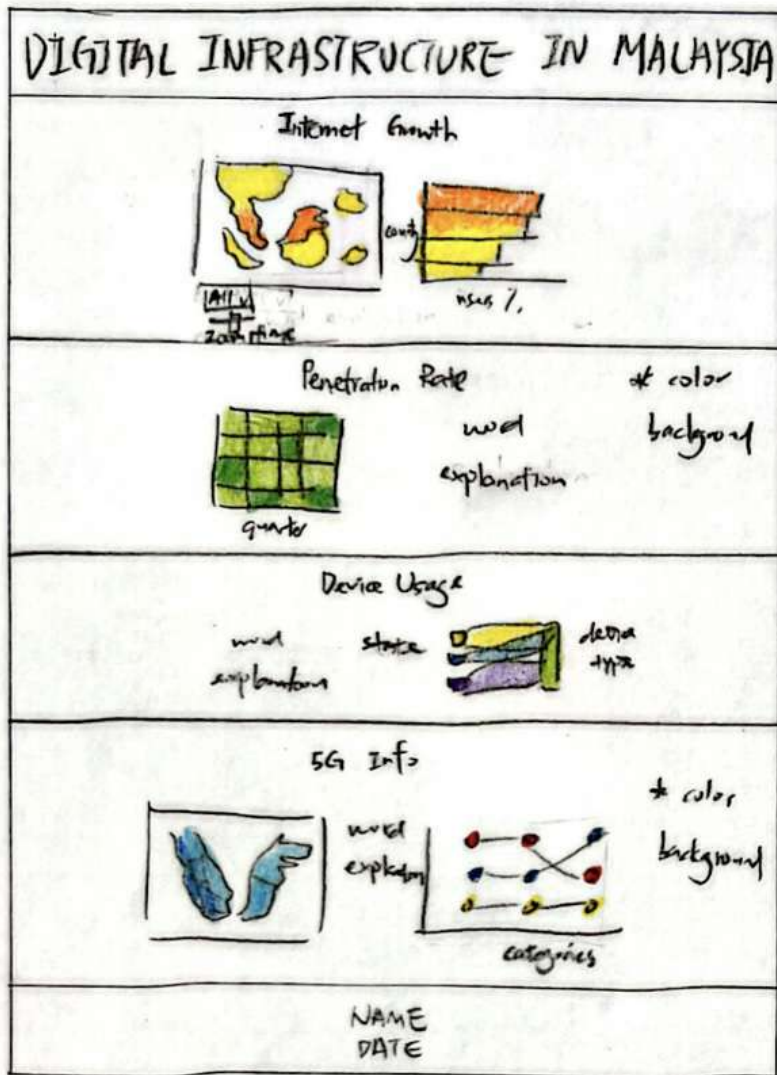 DIGITAL INFRASTRUCTURE IN MALAYSIA
Internet Growth
All v
users %
Penetration Rate
* color
background
word
explanation
quarter
Device Usage
word
explanation
state
device
type
5G Info
* color
background
word
categories
NAME
DATE